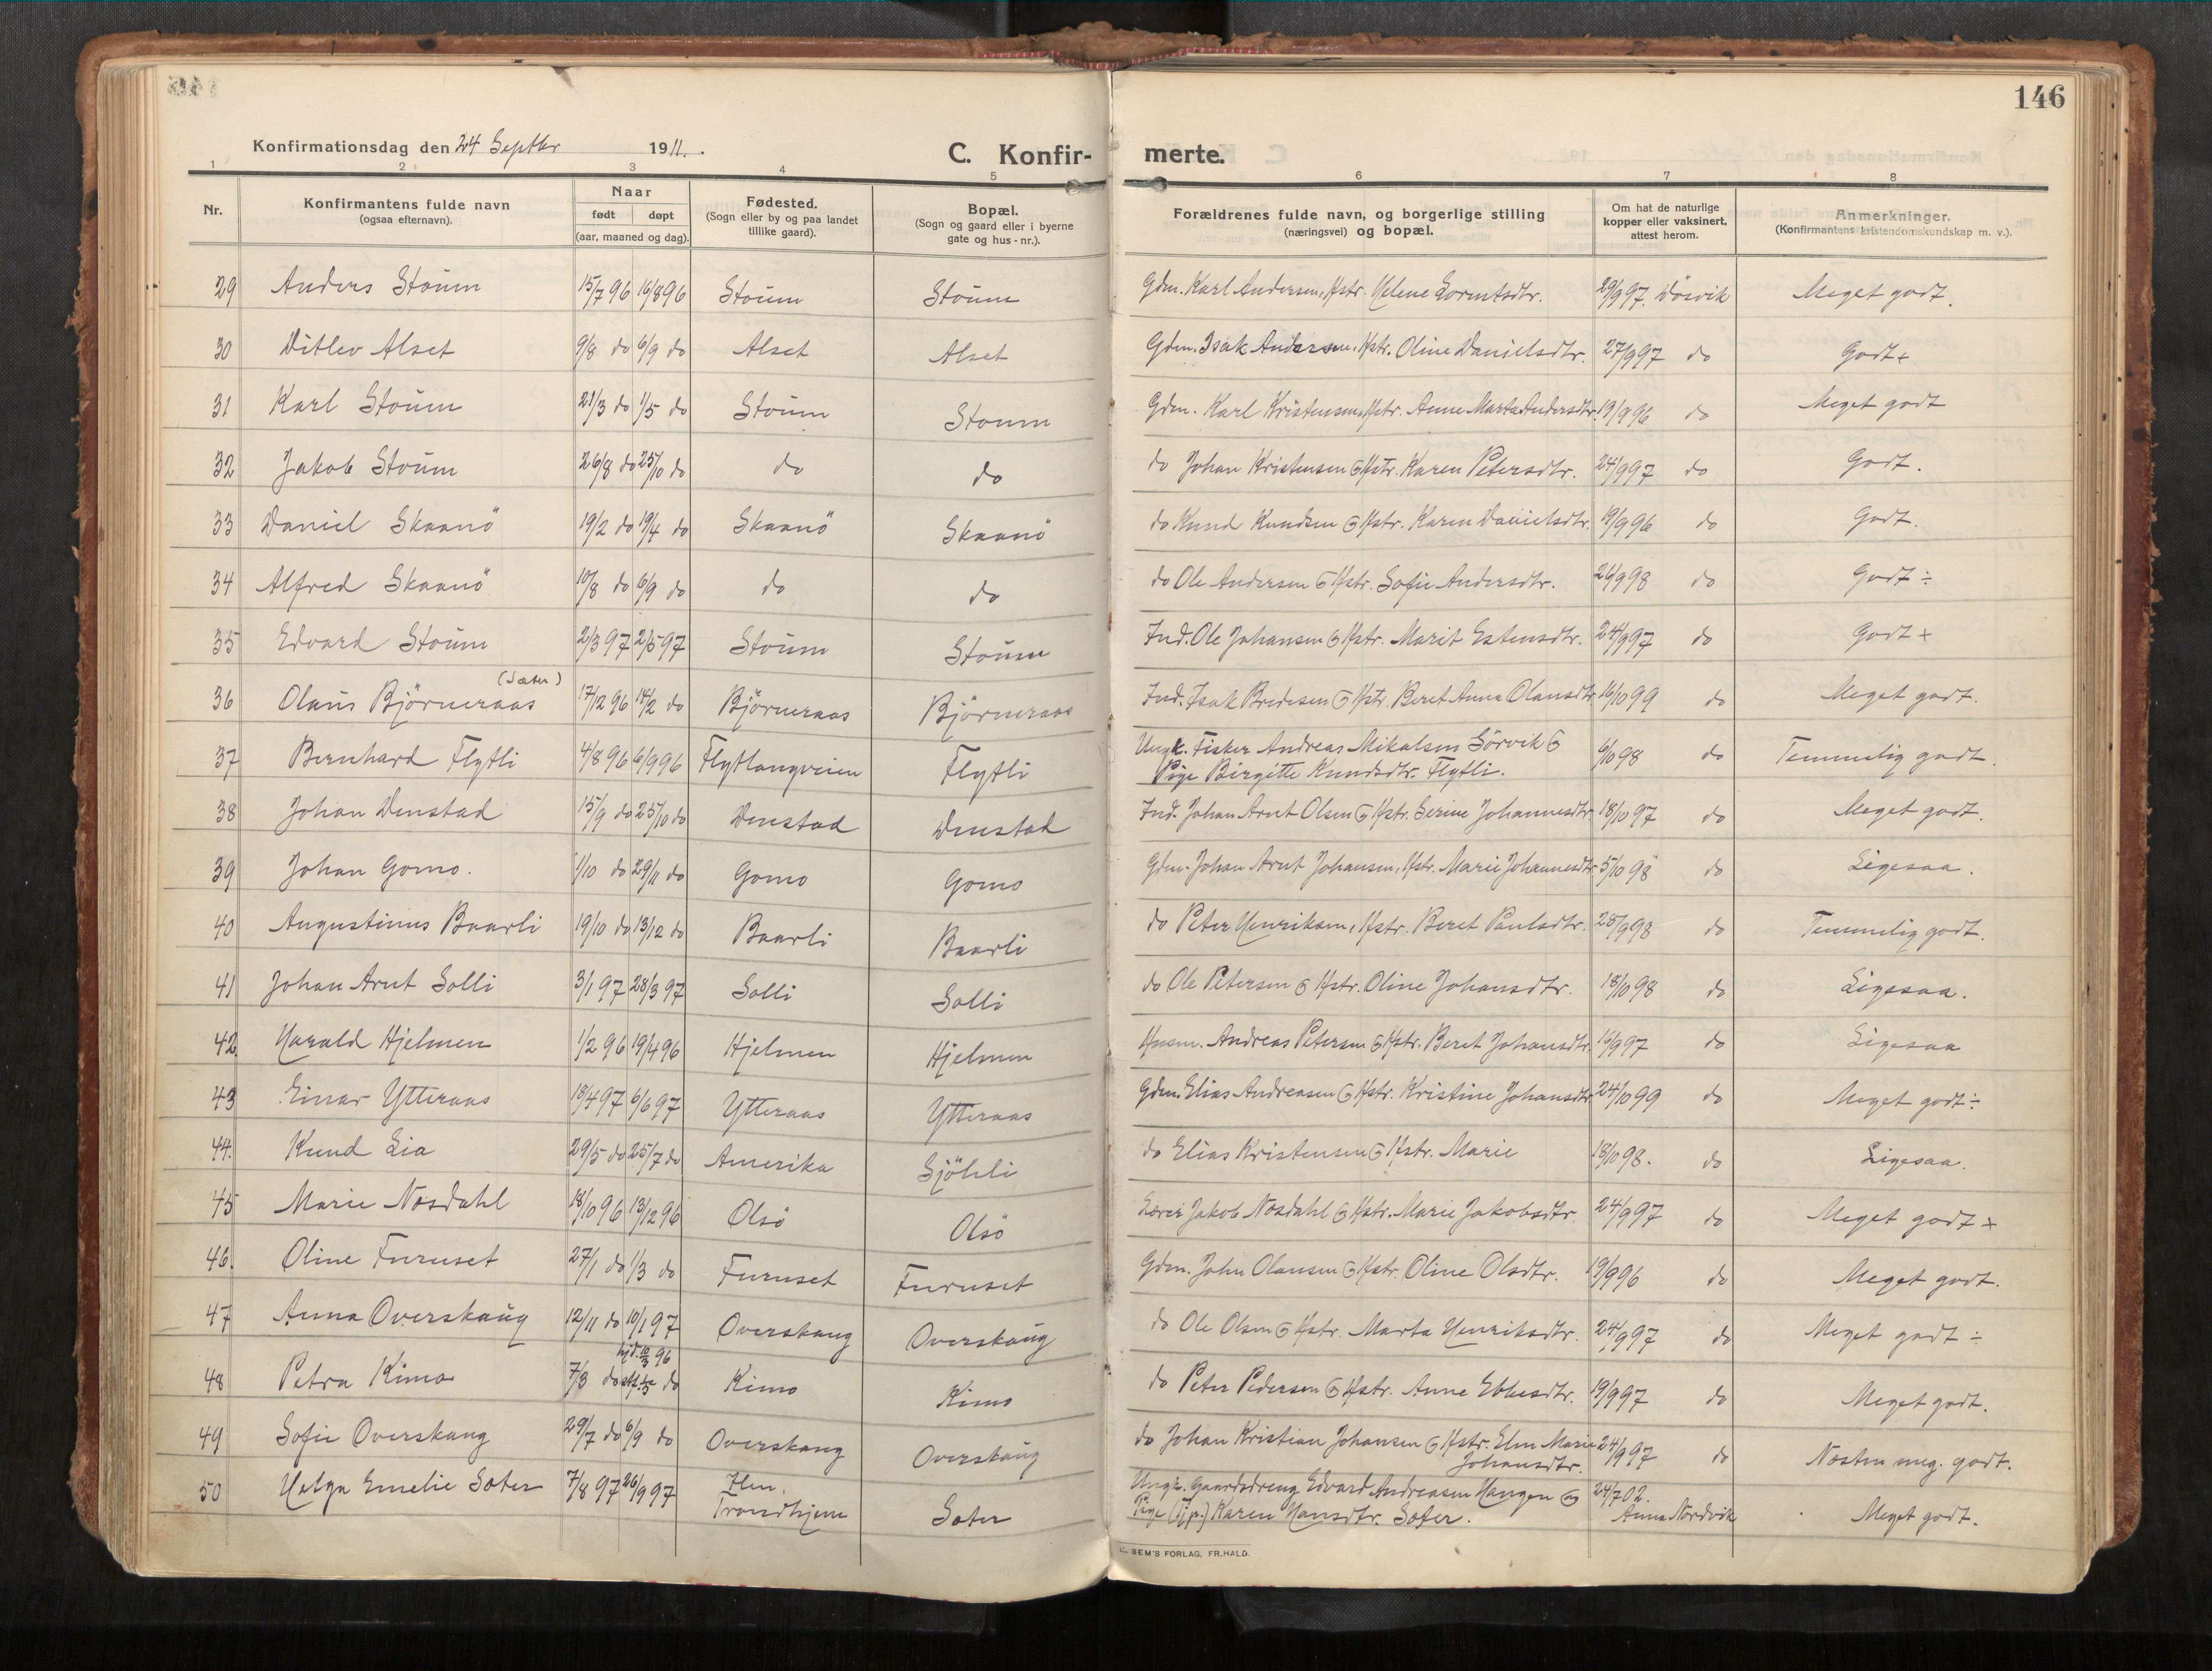 146
Konfirmationsdag den 24 Septbr 1911.
C. Konfir-
merte.
1 2 3 4 5 6 7 8
Nr.
Konfirmantens fulde navn
(ogsaa efternavn).
Naar
født døpt
(aar, maaned og dag).
Fødested.
(Sogn eller by og paa landet
tillike gaard).
Bopæl.
(Sogn og gaard eller i byerne
gate og hus-nr.).
Forældrenes fulde navn, og borgerlige stilling
(næringsvei) og bopæl.
Om hat de naturlige
kopper eller vaksinert,
attest herom.
Anmerkninger.
(Konfirmantens kristendomskundskap m. v.).
29 Anders Stoum 15/7 96 16/8 96 Stoum Stoum Gdm. Karl Andersen, Hstr. Helene Gormtsdtr. 29/9 97. Døsvik Meget godt.
30 Ditlev Alset 9/8 do 6/9 do Alset Alset Gdm. Isak Andersen, Hstr. Oline Danielsdtr. 27/9 97 do Godt +
31 Karl Stoum 21/3 do 1/5 do Stoum Stoum Gdm. Karl Kristensen, Hstr. Anne Marta Andersdtr. 19/9 96 do Meget godt
32 Jakob Stoum 26/8 do 25/10 do do do do Johan Kristensen og Hstr. Karen Petersdtr. 24/9 97 do Godt.
33 Daniel Skaanö 19/2 do 19/4 do Skaanö Skaanö do Knud Knudsen og Hstr. Karen Danielsdtr. 19/9 96 do Godt.
34 Alfred Skaanö 10/8 do 6/9 do do do do Ole Andersen og Hstr. Sofie Andersdtr. 24/9 98 do Godt ÷
35 Edvard Stoum 2/3 97 2/5 97 Stoum Stoum Ind. Ole Johansen og Hstr. Marit Estensdtr. 24/9 97 do Godt +
(Sæter)
36 Olaus Björneraas 17/12 96 14/2 do Björneraas Björneraas Ind. Isak Bredesen og Hstr. Beret Anna Olausdtr. 16/10 99 do Meget godt.
37 Bernhard Flytli 4/8 96 6/9 96 Flytlangveien Flytli Ungk. Fisker Andreas Mikalsen Sörvik og
Pige Birgitte Knudsdtr. Flytli. 6/10 98 do Temmelig godt.
38 Johan Denstad 15/9 do 25/10 do Denstad Denstad Ind. Johan Arnt Olsen og Hstr. Serine Johannesdtr. 18/10 97 do Meget godt.
39 Johan Gomo. 1/10 do 29/11 do Gomo Gomo Gdm. Johan Arnt Johansen, Hstr. Marie Johannesdtr. 5/10 98 do Ligesaa.
40 Augustinus Baarli 19/10 do 13/12 do Baarli Baarli do Peter Henriksen, Hstr. Beret Paulsdtr. 25/9 98 do Temmelig godt.
41 Johan Arnt Solli 3/1 97 28/3 97 Solli Solli do Ole Petersen og Hstr. Oline Johansdtr. 18/10 98 do Ligesaa.
42 Harald Hjelmen 1/2 96 19/4 96 Hjelmen Hjelmen Husm. Andreas Petersen og Hstr. Beret Johansdtr. 16/9 97 do Ligesaa
43 Einar Ytteraas 18/4 97 6/6 97 Ytteraas Ytteraas Gdm. Elias Andreasen og Hstr. Kristine Johansdtr. 24/10 99 do Meget godt ÷
44. Knud Lia 29/5 do 25/7 do Amerika Sjöhli do Elias Kristensen og Hstr. Marie 18/10 98. do Ligesaa.
45 Marie Nosdahl 18/10 96 13/12 96 Olsö Olsö Lærer Jakob Nosdahl og Hstr. Marie Jakobsdtr. 24/9 97 do Meget godt +
46. Oline Furuset 27/1 do 1/3 do Furuset Furuset Gdm. John Olausen og Hstr. Oline Olsdtr. 19/9 96 do Meget godt.
47 Anna Overskaug 12/11 do 10/1 97 Overskaug Overskaug do Ole Olsen og Hstr. Marta Henriksdtr. 24/9 97 do Meget godt ÷
hjd. 10/3 96
48 Petra Kimo 7/3 do stf. 1/5 do Kimo Kimo do Peter Pedersen og Hstr. Anne Ebbesdtr. 19/9 97 do Meget godt.
49 Sofie Overskaug 29/7 do 6/9 do Overskaug Overskaug do Johan Kristian Johansen og Hstr. Elen Marie
Johansdtr. 24/9 97 do Nosten meg. godt.
50 Helga Emelie Soter 7/8 97 26/9 97 Ilen,
Trondhjem Soter Ungk. Gaardsdreng Edvard Andreasen Haugen og
Pige (Tjp.) Karen Hansdtr. Soter. 24/7 02.
Anna Nordvik Meget godt.
SEM'S FORLAG, FR.HALD.